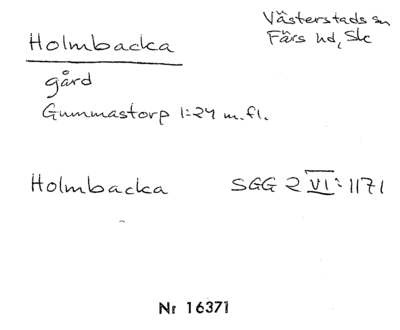 Holmbacka
Västerstads sn
Färs hd, Sk
gård
Gummastorp 1:24 m.fl.
Holmbacka SGG 2 VI: 1171
Nr 16371